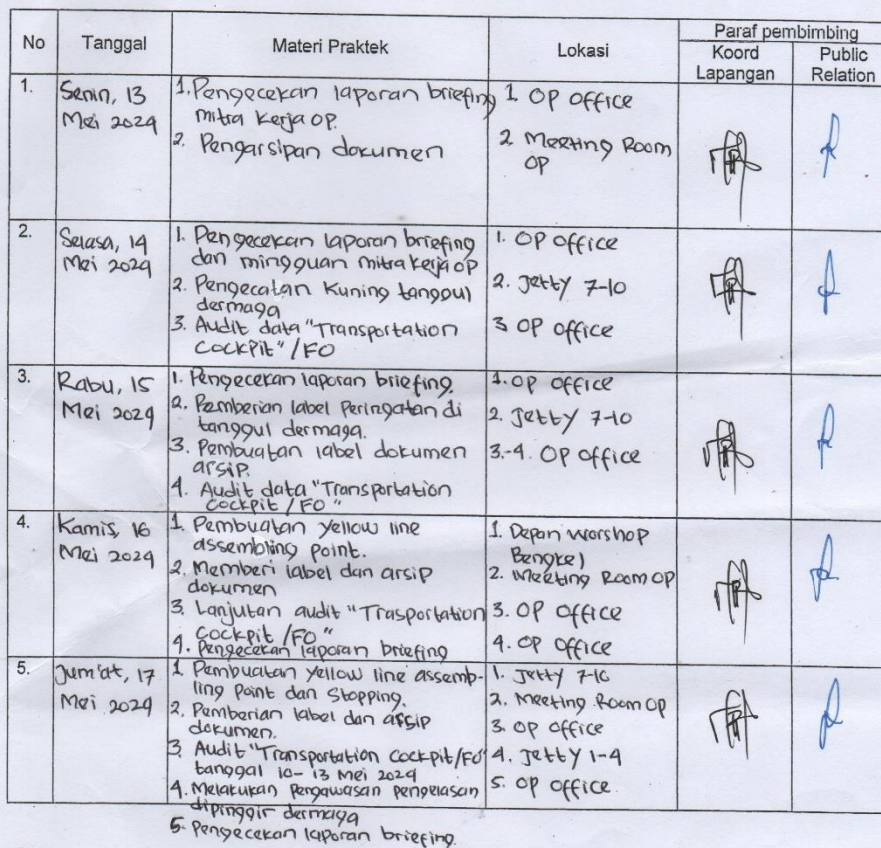 No Tanggal Materi Praktek Lokasi Paraf pembimbing
Koord Lapangan Public Relation
1. Senin, 13 Mei 2024
1. Pengecekan laporan briefing
mitra kerja OP.
2. Pengarsipan dokumen
1. OP Office
2 Meeting Room
OP
2. Selasa, 14 Mei 2024
1. Pengecekan laporan briefing
dan mingguan mitra kerja OP
2. Pengecatan Kuning tanggul
dermaga
3. Audit data "Transportation
Cockpit" / FO
1. OP Office
2. Jetty 7-10
3 OP Office
3. Rabu, 15 Mei 2024
1. Pengecekan laporan briefing.
2. Pemberian label Peringatan di
tanggul dermaga.
3. Pembuatan label dokumen
arsip.
4. Audit data "Transportation
Cockpit / FO "
1. OP Office
2. Jetty 7-10
3.-4. OP Office
4. Kamis, 16 Mei 2024
1. Pembuatan yellow line
assembling point.
2. Memberi label dan arsip
dokumen
3. Lanjutan audit "Trasportation
Cockpit / FO "
4. Pengecekan laporan briefing
1. Depan worshop
Bengkel
2. Meeting Room OP
3. OP Office
4. OP Office
5. Jum'at, 17 Mei 2024
1. Pembuatan yellow line assemb-
ling point dan Stopping.
2. Pemberian label dan arsip
dokumen.
3 Audit "Transportation Cockpit/FO"
tanggal 10-13 Mei 2024
4. Melakukan Pengawasan pengelasan
dipinggir dermaga
5. Pengecekan laporan briefing.
1. Jetty 7-10
2. Meeting Room OP
3. OP Office
4. Jetty 1-4
5. OP Office